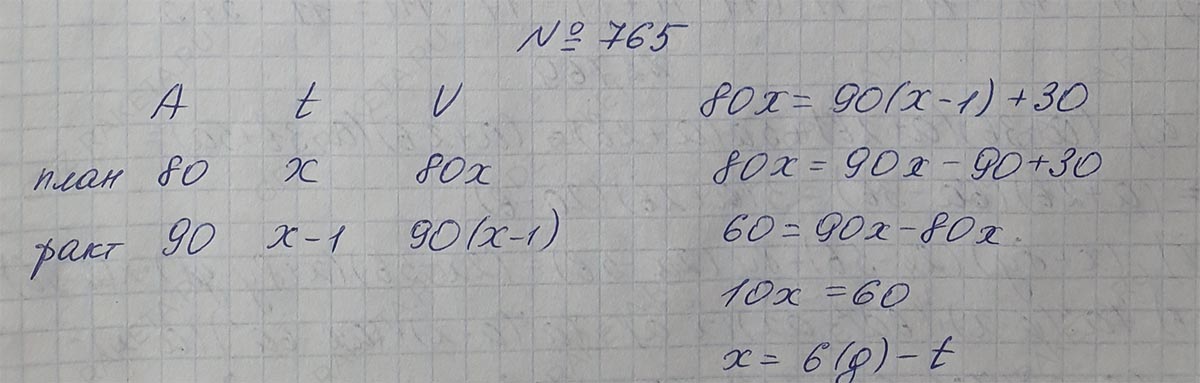 № 765
A t V
план 80 x 80x
факт 90 x-1 90(x-1)
80x = 90(x-1)+30
80x = 90x - 90+30
60 = 90x-80x
10x = 60
x = 6(g) - t